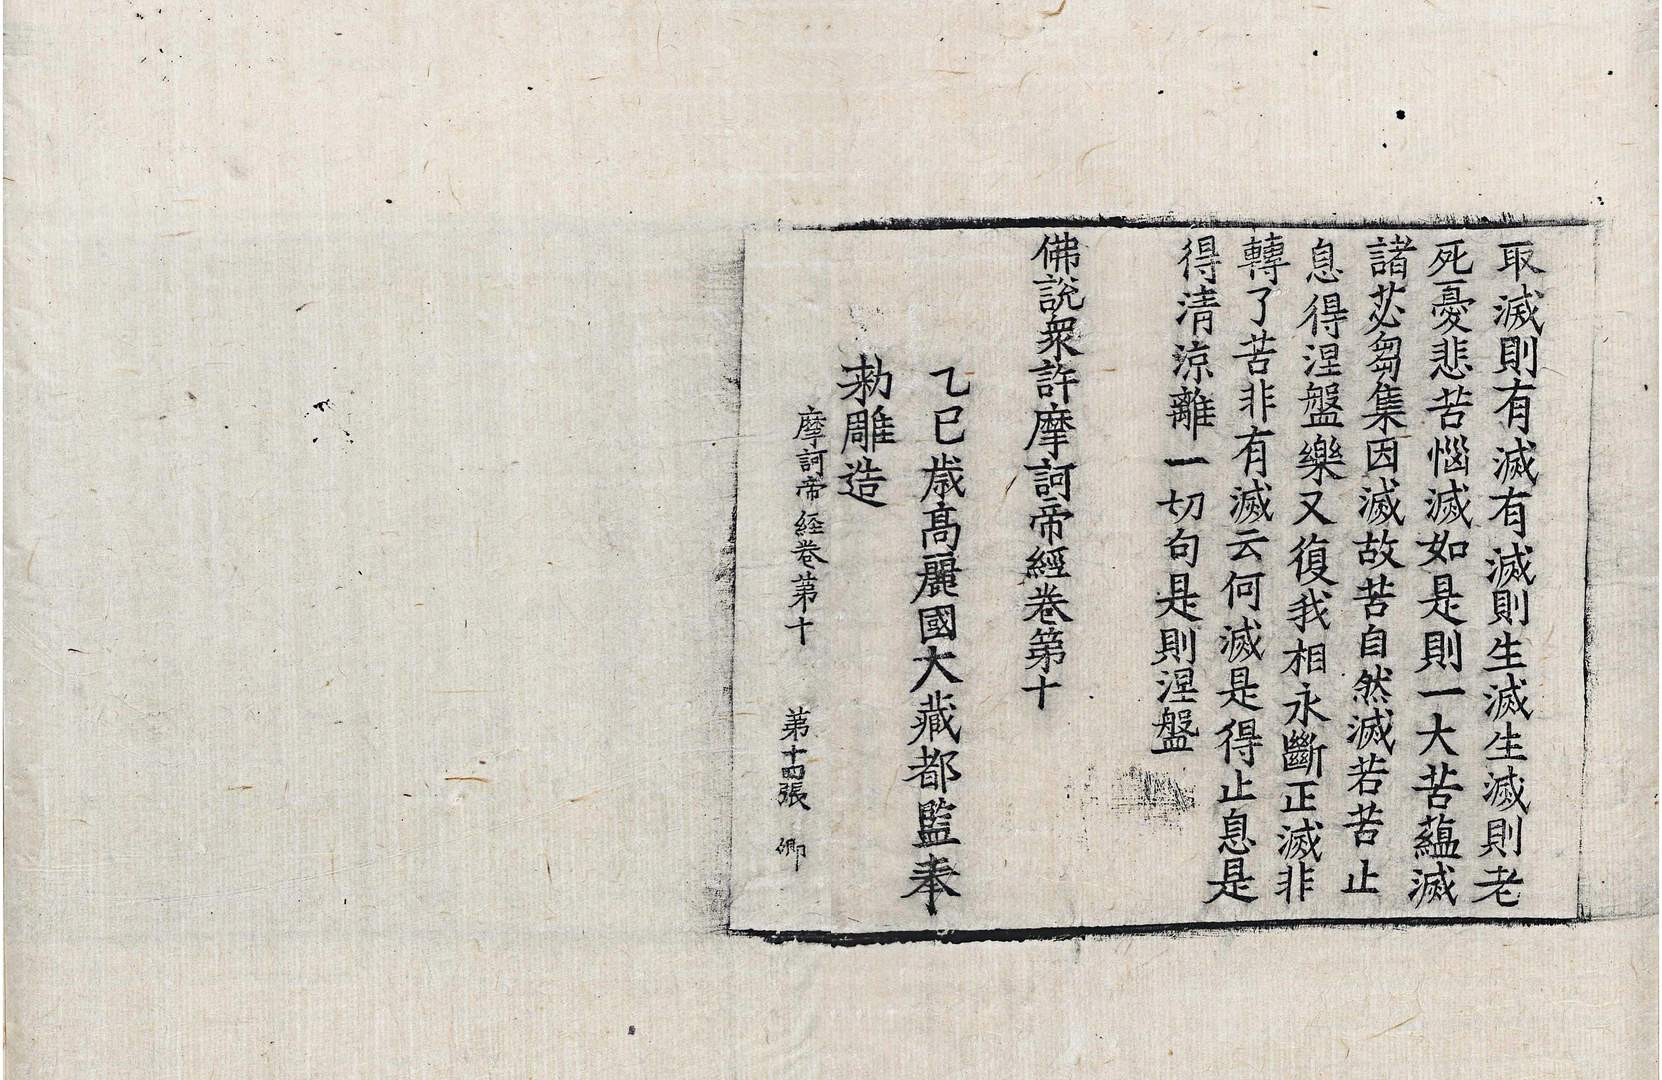 取滅則有滅有滅則生滅生滅則老
死憂悲苦惱滅如是則一大苦蘊滅
諸苾芻集因滅故苦自然滅若苦止
息得涅盤樂又復我相永斷正滅非
轉了苦非有滅云何滅是得止息是
得清涼離一切句是則涅盤
佛說衆許摩訶帝經卷第十
乙巳歲高麗國大藏都監奉
勅雕造
摩訶帝經卷第十 第十四張 卿